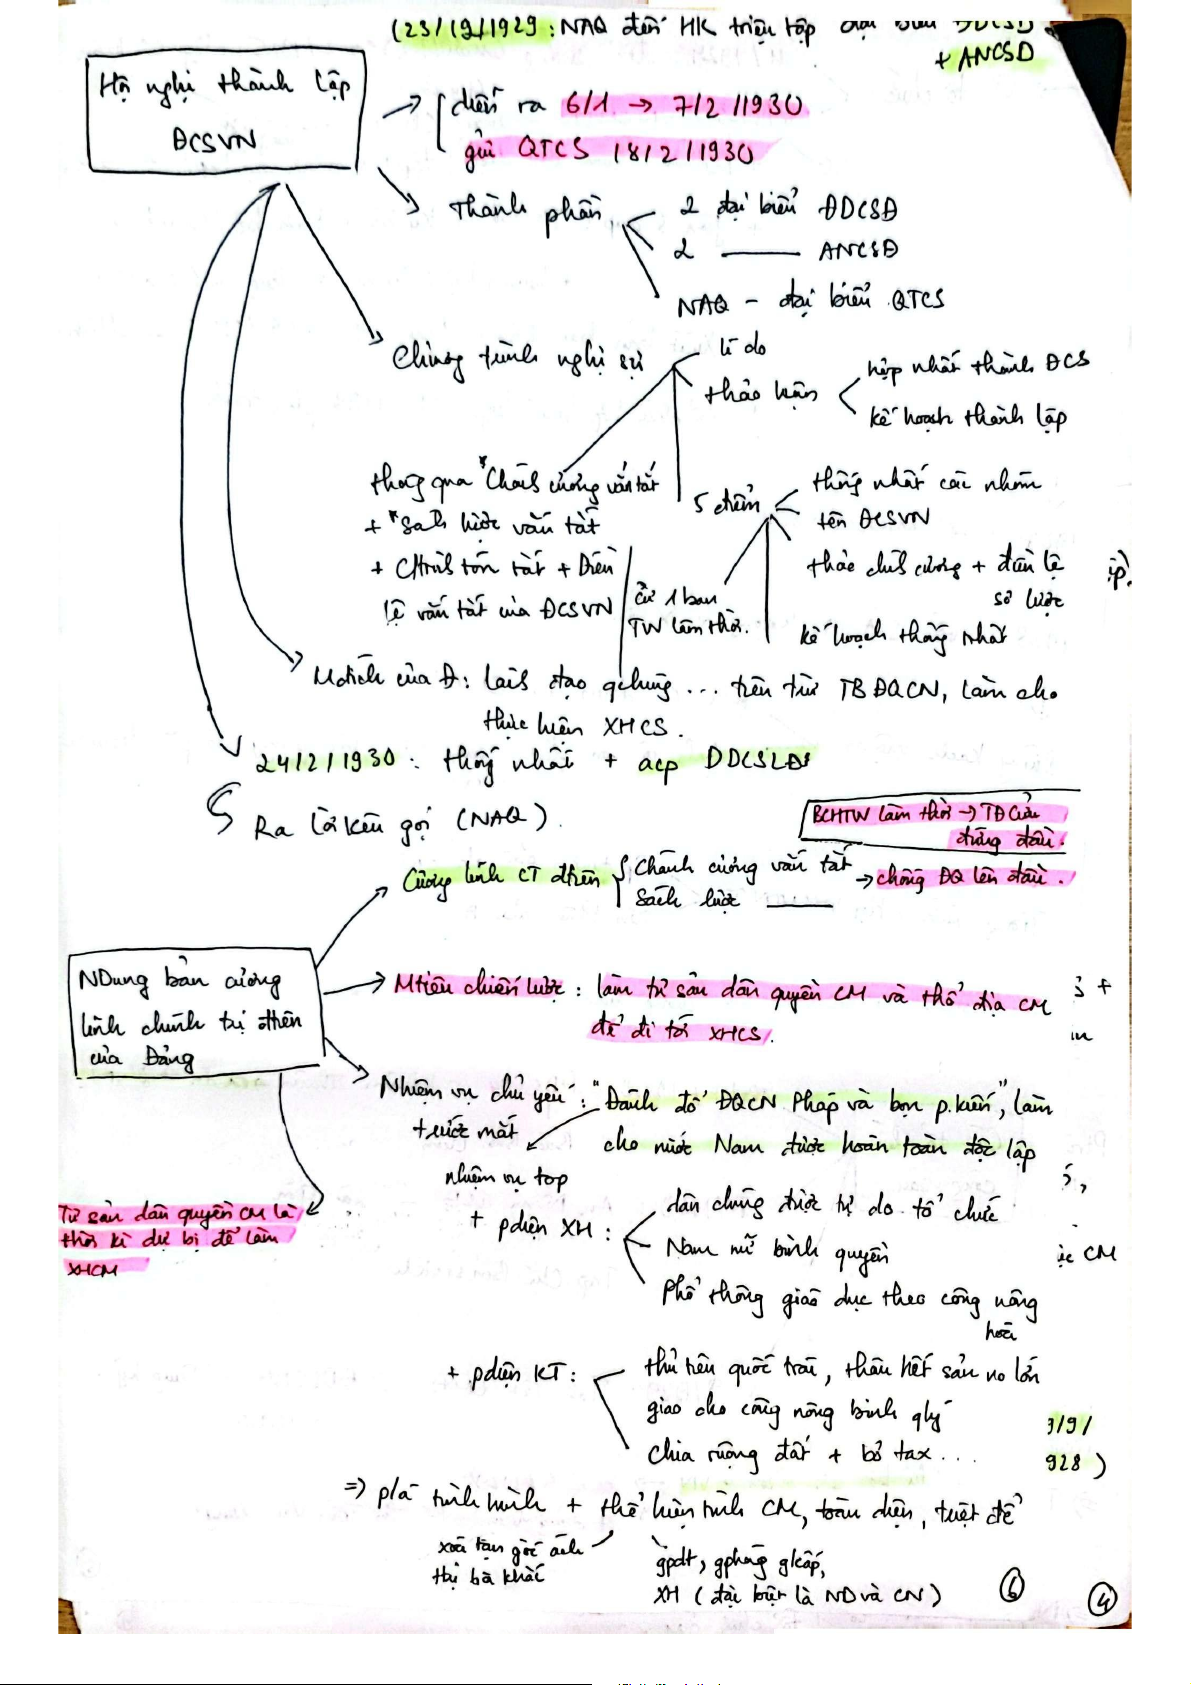 (23/12/1929: NAQ đến HK triệu tập đại biểu ĐDCSĐ
+ ANCSD
Hội nghị thành lập
ĐCSVN
diễn ra 6/1 → 7/2/1930
gửi QTCS 18/2/1930
Thành phần
2 đại biểu ĐDCSĐ
2 —— ANCSĐ
NAQ - đại biểu QTCS
Chương trình nghị sự
lí do
thảo luận
hợp nhất thành ĐCS
kế hoạch thành lập
thông qua "Chánh cương vắn tắt
+ "Sách lược vắn tắt
+ Ctrình tóm tắt + Điều
lệ vắn tắt của ĐCSVN
5 điểm
thống nhất các nhóm
tên ĐCSVN
thảo chính cương + điều lệ
sơ lược
kế hoạch thống nhất
cử 1 ban
TW lâm thời.
ip.
Mđích của Đ: lãnh đạo qchúng ... trên trừ TB ĐQCN, làm cho
thực hiện XHCS.
24/2/1930: thống nhất + acp DDCSLĐ
Ra lời kêu gọi (NAQ).
BCHTW lâm thời → TĐ Cửu
đứng đầu.
Cương lĩnh CT đtiên
Chánh cương vắn tắt
Sách lược ——
→ chống ĐQ lên đầu.
NDung bản cương
lĩnh chính trị đtiên
của Đảng
Mtiêu chiến lược: làm tư sản dân quyền CM và thổ địa CM
để đi tới XHCS.
Nhiệm vụ chủ yếu: "Đánh đổ ĐQCN Pháp và bọn p.kiến", làm
trước mắt
cho nước Nam được hoàn toàn độc lập
nhiệm vụ top
Tư sản dân quyền CM là
thời kì dự bị để làm
XHCM
+ pdiện XH:
dân chúng được tự do tổ chức
Nam nữ bình quyền
Phổ thông giáo dục theo công nông
hoá
ác CM
+ pdiện KT:
thủ tiêu quốc trái, thâu hết sản no lớn
giao cho công nông binh qlý
chia ruộng đất + bỏ tax...
3/9/
928)
=> plà tình hình + thể hiện tính CM, toàn diện, triệt để
xoá tận gốc ách
thị bà khắc
gpdt, gphóng gcấp,
XH (đặc biệt là ND và CN)
6
4